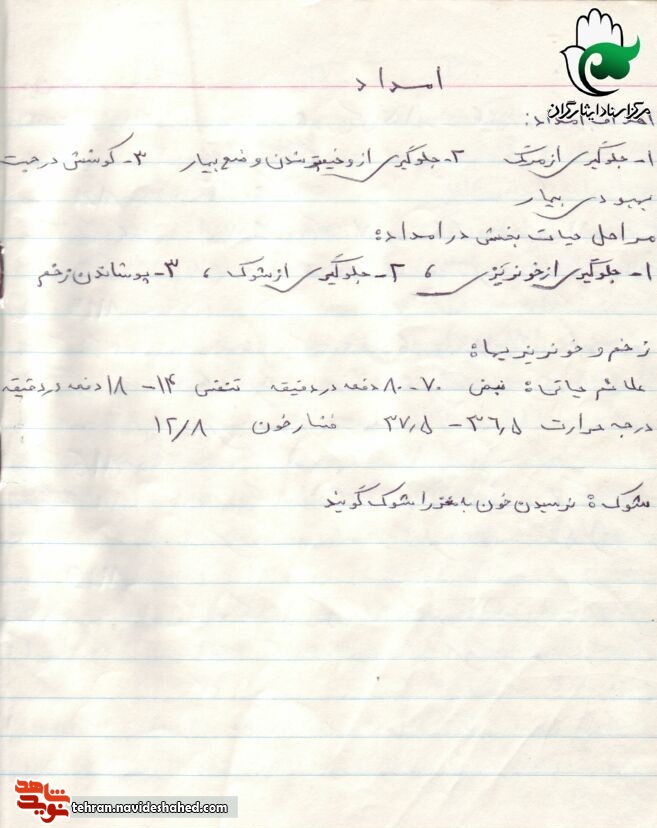 امداد
مرکز اسناد ایثارگران
اهداف امداد:
۱- جلوگیری از مرگ ۲- جلوگیری از وخیم‌تر شدن وضع بیمار ۳- کوشش در جهت
بهبودی بیمار
مراحل حیات بخش در امداد:
۱- جلوگیری از خونریزی ، ۲- جلوگیری از شوک ، ۳- پوشاندن زخم
زخم و خونریزیها:
علائم حیاتی: نبض ۷۰-۸۰ دفعه در دقیقه تنفس ۱۴-۱۸ دفعه در دقیقه
درجه حرارت ۳۶٫۵-۳۷٫۵ فشار خون ۱۲/۸
شوک: نرسیدن خون به مغز را شوک گویند
شاهد
نوید
tehran.navideshahed.com